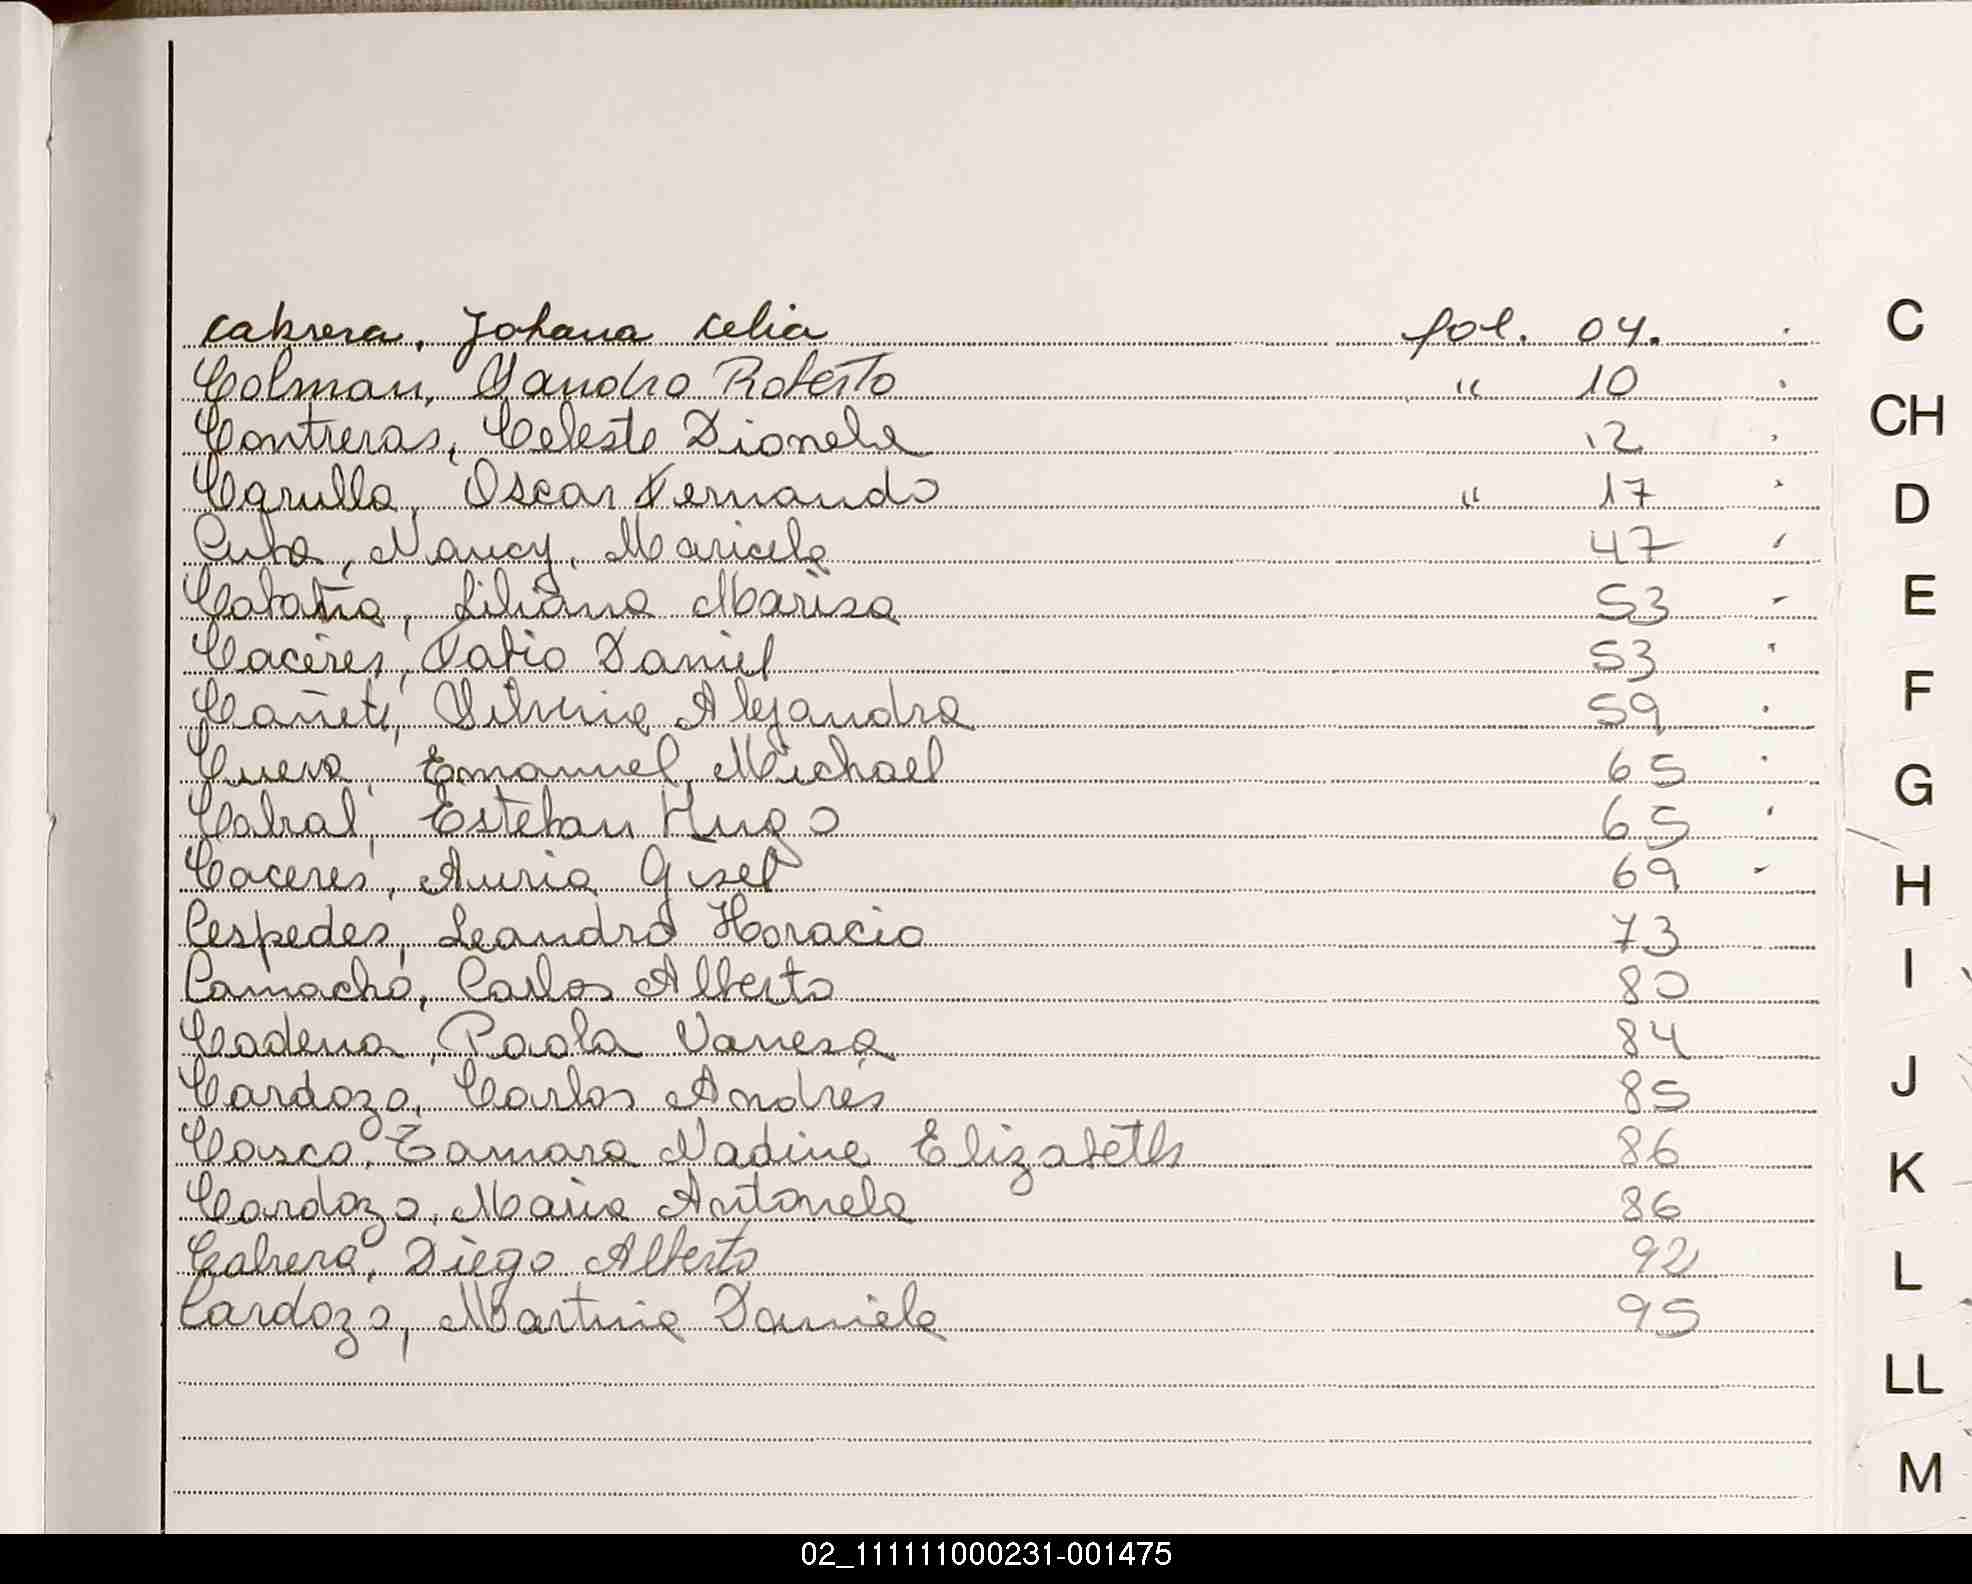 Cabrera, Johana Celia fol. 04.
Colman, Sandro Roberto " 10
Contreras, Celeste Dionela 12
Carulla, Oscar Fernando " 17
Cuba, Nancy, Maricela 47
Liliana Marisa 53
Caceres, Fabio Daniel 53
Cañete, Silvina Alejandra 59
Emanuel Michael 65
Cabral, Esteban Hugo 65
Caceres, Gisel 69
Cespedes, Leandro Horacio 73
Camacho, Carlos Alberto 80
Cadena, Paola Vanesa 84
Cardozo, Carlos Andrés 85
Casco, Tamara Nadine Elizabeth 86
Cardozo, María Antonela 86
Cabrera, Diego Alberto 92
Cardozo, Martina Daniela 95
C
CH
D
E
F
G
H
I
J
K
L
LL
M
02_111111000231-001475